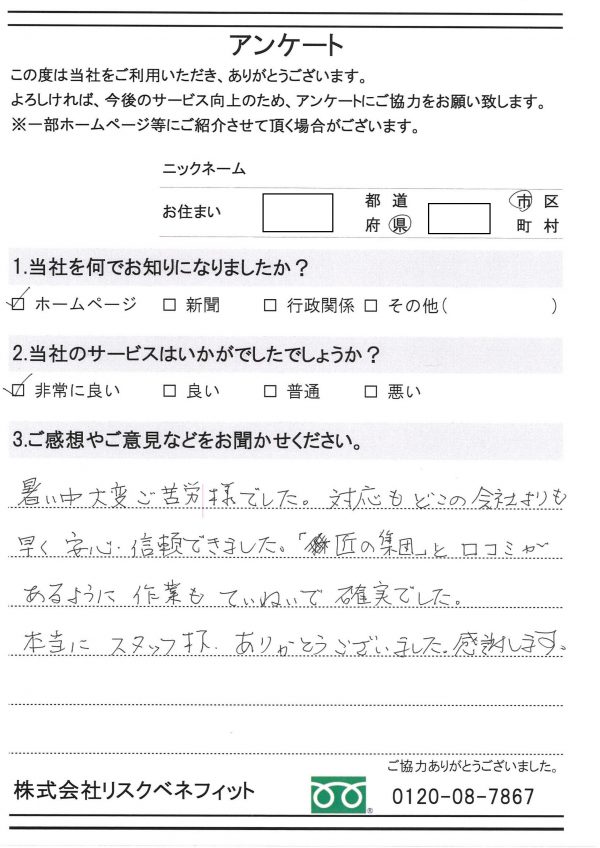 アンケート
この度は当社をご利用いただき、ありがとうございます。
よろしければ、今後のサービス向上のため、アンケートにご協力をお願い致します。
※一部ホームページ等にご紹介させて頂く場合がございます。
ニックネーム
お住まい 都 道 府 県 市 区 町 村
1.当社を何でお知りになりましたか？
☑ ホームページ □ 新聞 □ 行政関係 □ その他( )
2.当社のサービスはいかがでしたでしょうか？
☑ 非常に良い □ 良い □ 普通 □ 悪い
3.ご感想やご意見などをお聞かせください。
暑い中大変ご苦労様でした。対応もどこの会社よりも
早く安心・信頼できました。「匠の集団」と口コミが
あるように作業もていねいで確実でした。
本当にスタッフ様、ありがとうございました。感謝します。
ご協力ありがとうございました。
株式会社リスクベネフィット 0120-08-7867